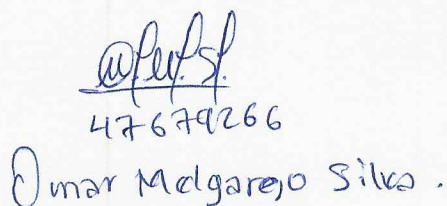 47679266
Omar Melgarejo Silva.